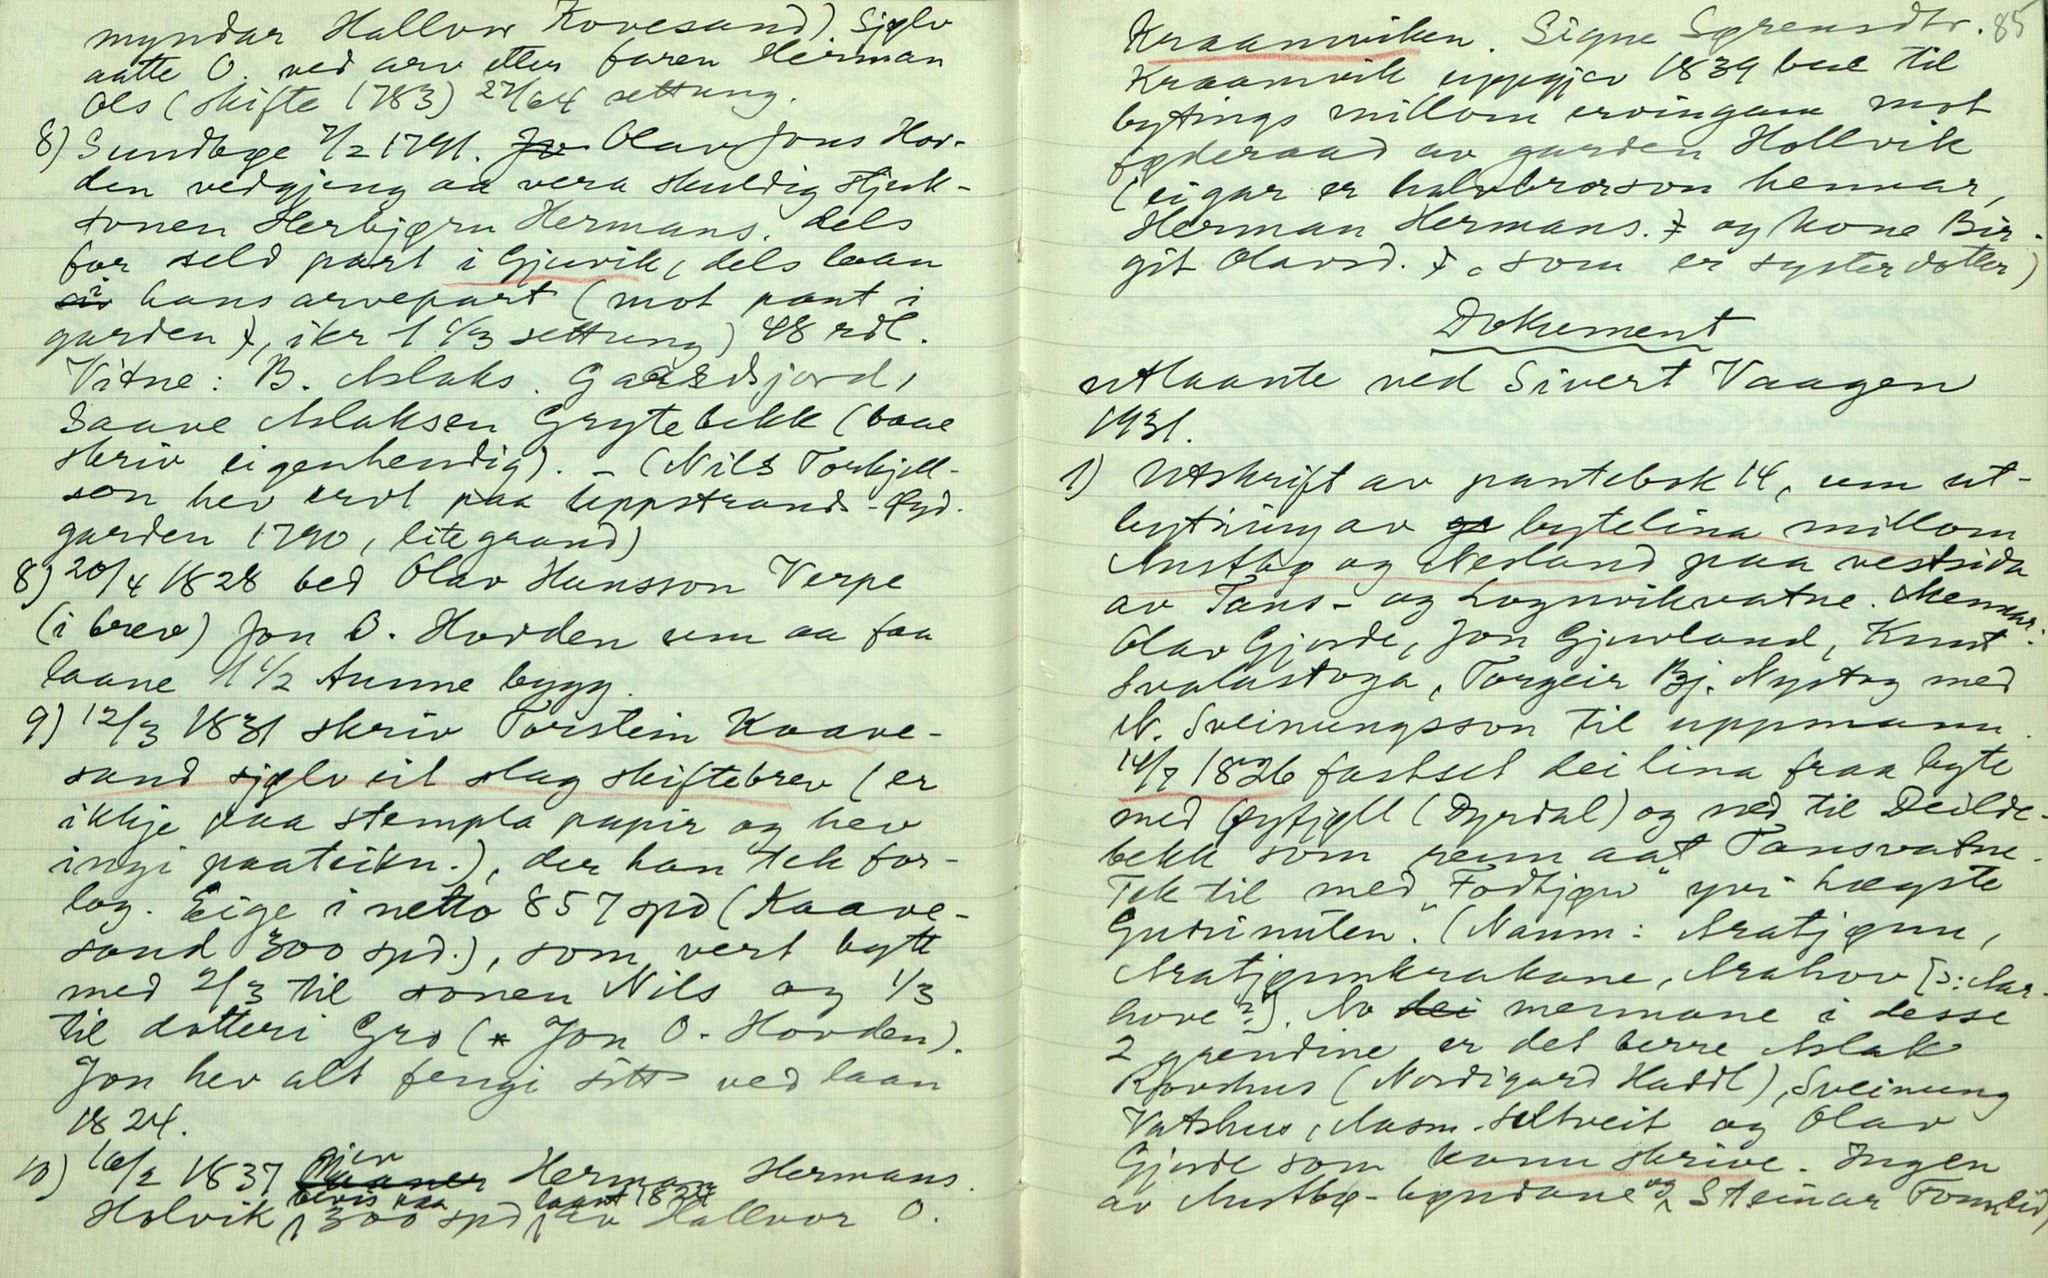 myndar Hallvor Kovesand) Sjølv
aatte O. ved arv etter faren Herman
Ols (skifte 1783) 27/64 settung.
8) Sundbøe 7/2 1791. Jo Olav Jons Hov-
den vedgjeng aa vera skuldig stjuk-
sonen Herbjørn Hermans. dels
for seld part i Gjuvik, dels laan
i hans arvepart (mot pant i
garden), ikr 1 1/3 settung) 48 rdl.
Vitne: B. Aslaks. Gaardsjord,
Saave Aslaksen Grytebekk (baae
skriv eigenhendig). - (Nils Torkjell-
son hev ervt paa Uppstrand-Øyd.
garden 1790, lite grand)
8) 20/4 1828 bed Olav Hansson Verpe
(i brev) Jon O. Hovden um aa faa
laane 1 1/2 tunne bygg.
9) 12/3 1831 skriv Torstein Kaave-
sand sjølv eit slag skiftebrev (er
ikkje paa stempla papir og hev
ingi paateikn.), der han tek for-
log. Eige i netto 857 spd (Kaave-
sand 300 spd.), som vert bytt
med 2/3 til sonen Nils og 1/3
til dotteri Gro (* Jon O. Hovden).
Jon hev alt fengi sitt ved laan
1824.
10) 16/2 1837 gjev Herman Hermans.
Holvik bevis paa 300 spd laant 1824 av Hallvor O.
85
Kraamviken. Signe Sørensdtr.
Kraamvik uppgjev 1839 bui til
bytings millom ervingane mot
føderaad av garden Hollvik
(eigar er halvbrorson hennar,
Herman Hermans. og kone Bir-
git Olavsd. som er systerdotter)
Dokument
utlaante ved Sivert Vaagen
1931.
1) Utskrift av pantebok 14, um ut-
bytning av bytelina millom
Austbø og Nesland paa vestsida
av Tans- og Lognvikvatne. Mennar:
Olav Gjorde, Jon Gjuvland, Knut
Svalastoga, Torgeir Bj. Nystog med
N. Sveinungsson til uppmann.
14/7 1826 fastset dei lina fraa byte
med Øyfjell (Dyrdal) og ned til Deilde-
bekk som renn aat Tansvatne.
Tek til med "Fodtjønn" yvi høgste
Gudsinuten". (Namn: Aratjønn,
Aratjønnkrakane, Arahov [ɔ: Aar-
hove?]. Av dei mennane i desse
2 grendine er det berre Aslak
Kovshus (Nordigard Haddl), Sveinung
Vatshus, Aasm. Seltveit og Olav
Gjorde som kann skrive. Ingen
av Austbø-bøndane og Steinar Fonnlid